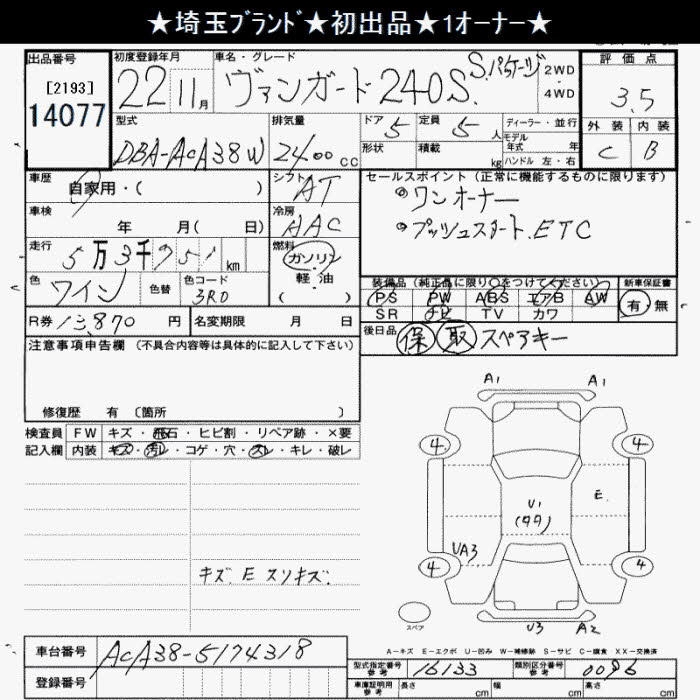 ★埼玉ﾌﾞﾗﾝﾄﾞ★初出品★1オーナー★
出品番号
[2193]
14077
初度登録年月
22 11月
車名・グレード
ヴァンガード 240S. Sパッケージ
2WD
4WD
評価点
3.5
外装 内装
C B
型式
DBA-ACA38W
排気量
2400cc
ドア
5
形状
定員
5人
積載
kg
ディーラー・並行
モデル年式 年
ハンドル 左・右
車歴
自家用・( )
シフト
AT
セールスポイント (正常に機能するものに限ります)
ワンオーナー
プッシュスタート. ETC
車検
年 月( 日)
冷房
AAC
走行
5万3千951km
燃料
ガソリン
軽・油
( )
色
ワイン
色替
色コード
3R0
装備品 (純正品に限り○をつけてください)
PS PW ABS エアB AW
SR ナビ TV カワ
新車保証書
有 無
R券 13,870 円
名変期限 月 日
後日品
保 取 スペアキー
注意事項申告欄 (不具合内容等は具体的に記入して下さい)
修復歴 有 〔箇所 〕
検査員
記入欄
FW キズ・飛石・ヒビ割・リペア跡・×要
内装 キズ・汚レ・コゲ・穴・スレ・キレ・破レ
キズ. E スリキズ.
A1 A1
4 4
E.
U1
(99)
UA3
4 4
U3 A2
スペア
A-キズ E-エクボ U-凹み W-補修跡 S-サビ C-腐食 XX-交換済
車台番号
ACA38-5174318
登録番号
型式指定番号
参考
16133
類別区分番号
参考
0096
車庫証明用
参考
長さ cm 幅 cm 高さ cm